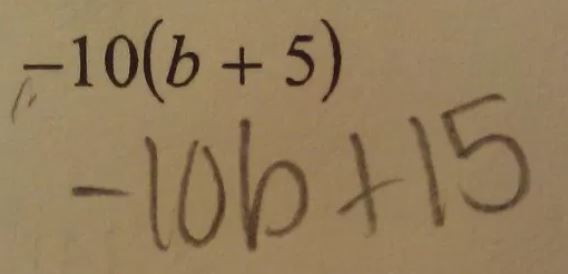 -10(b + 5)
-10b+15